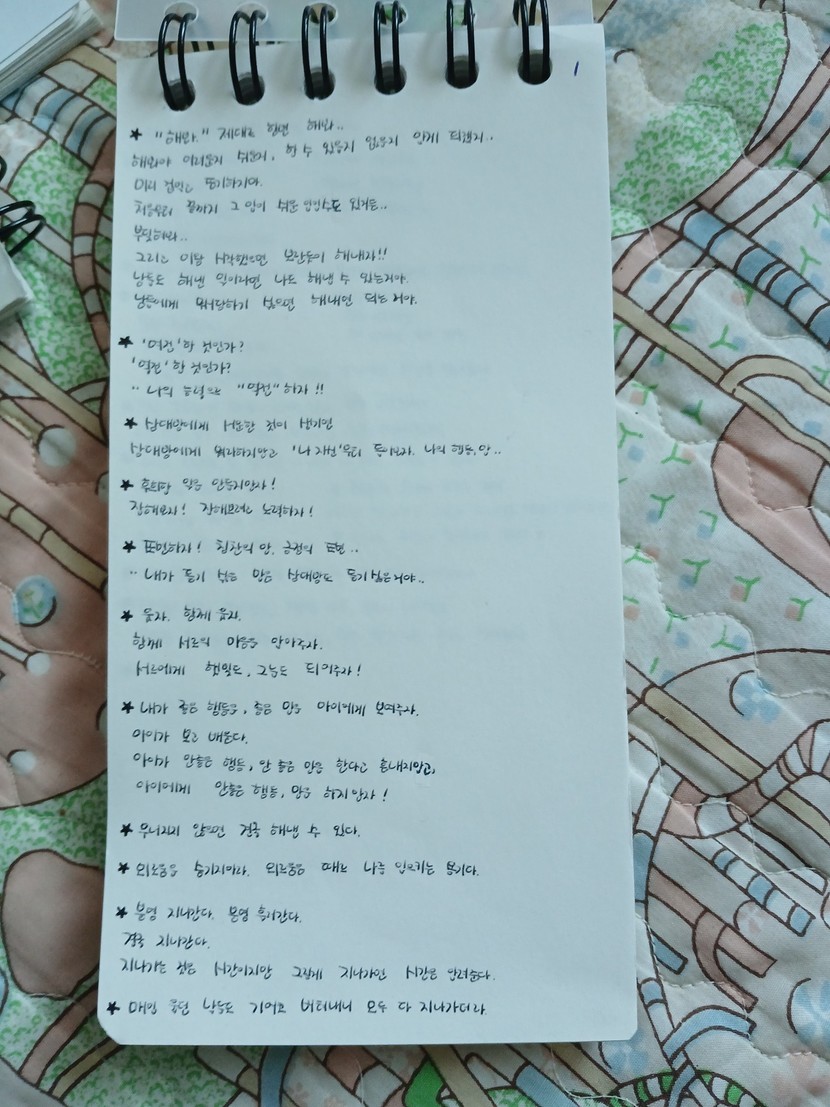 1
★ "해봐." 제대로 한번 해봐..
해봐야 어려운지 쉬운지, 할 수 있을지 없을지 알게 되겠지..
미리 겁먹고 포기하지마.
처음부터 끝까지 그 일이 쉬운 일일수도 있거든..
부딪혀봐..
그리고 이왕 시작했으면 보란듯이 해내자!!
남들도 해낸 일이라면 나도 해낼 수 있는거야.
남들에게 무시당하기 싫으면 해내면 되는 거야.
★ '여전'할 것인가?
'역전'할 것인가?
.. 나의 능력으로 "역전"하자!!
★ 상대방에게 서운한 것이 생기면
상대방에게 뭐라하지말고 '나 자신'부터 돌아보자. 나의 행동, 말..
★ 후회할 일을 만들지말자!
잘해보자! 잘해보려고 노력하자!
★ 표현하자! 칭찬의 말, 긍정의 표현..
.. 내가 듣기 싫은 말은 상대방도 듣기 싫은거야..
★ 웃자. 함께 웃자.
함께 서로의 마음을 안아주자.
서로에게 햇빛도, 그늘도 되어주자!
★ 내가 좋은 행동을, 좋은 말을 아이에게 보여주자.
아이가 보고 배운다.
아이가 안좋은 행동, 안 좋은 말을 한다고 혼내지말고,
아이에게 안좋은 행동, 말을 하지말자!
★ 무너지지 않으면 결국 해낼 수 있다.
★ 외로움을 숨기지마라. 외로움은 때로 나를 일으키는 용기다.
★ 분명 지나간다. 분명 흘러간다.
결국 지나간다.
지나가는 것은 시간이지만 그렇게 지나가면 시간은 알려준다.
★ 매일 울던 날들도 기어코 버텨내니 모두 다 지나가더라.